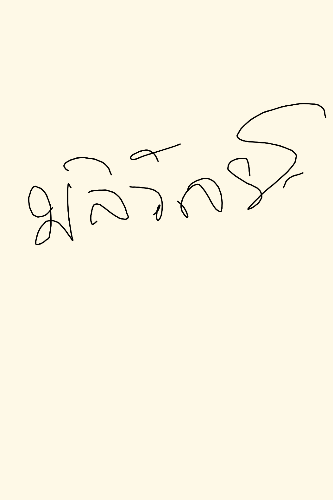 มลิวัลย์